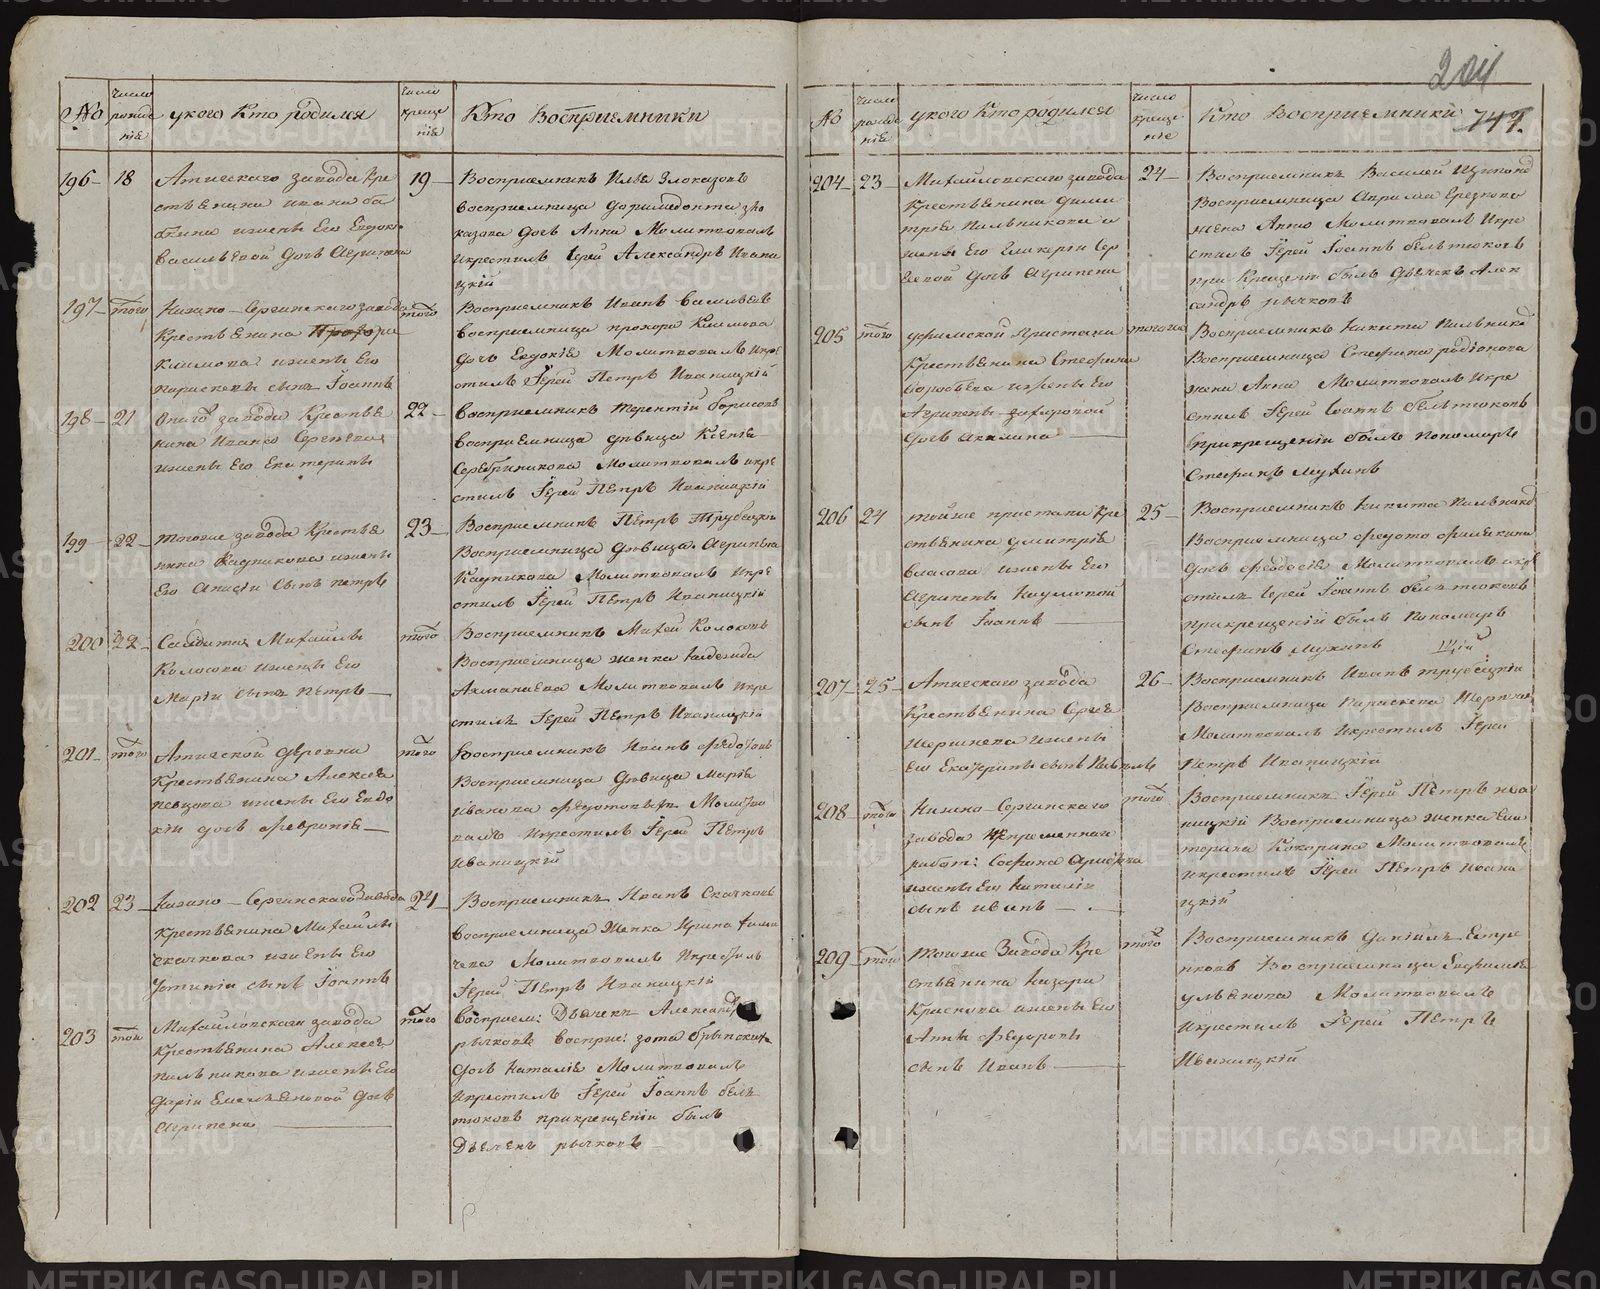 204
747.
№
Число рожде нiе
у кого Кто родился
Число креще нiе
Кто Восприемники
196 18
Атигскаго завода Кре
стьянина Ивана ба
бкина ижены Его Евдокi
Васильевой дочь Агрипена
19
Восприемникъ Илья Злоказовъ
восприемница
казова дочь Анна Молитвовалъ
икрестилъ Iерей Александръ Ивани
цкiй
197 того
Нижно-Сергинскаго завода
Крестьянина
Климова ижены Его
Параскевы сынъ Iоаннъ
того
Восприемникъ Иванъ Васильевъ
восприемница прохора Климова
дочь Евдокiя Молитвовалъ икре
стилъ Iерей Петръ Иваницкiй
198 21
Оного завода Крестья
нина Ивана Сергеева
ижены Его Екатерины
22
Восприемникъ Терентiй борисовъ
восприемница дѣвица Ксенiя
Серебрникова Молитвовалъ икре
стилъ Iерей Петръ Иваницкiй
199 22
Тогоже завода Крестья
нина Кадникова ижены
Его Сынъ петръ
23
Восприемникъ Петръ Трубецкiй
Восприемница дѣвица Агрипена
Кадникова Молитвовалъ икре
стилъ Iерей Петръ Иваницкiй
200 22
Солдата Михаилы
Колосова ижены Его
Марiи сынъ Петръ
того
Восприемникъ Колосовъ
Восприемница женка Надежда
Ахманаева Молитвовалъ икре
стилъ Iерей Петръ Иваницкiй
201 того
Атигской деревни
Крестьянина Алексея
певцова ижены Его Евдо
кiи дочь Февронiя
того
Восприемникъ Иванъ Федотовъ
Восприемница дѣвица Марiя
Иванова Молитво
валъ икрестилъ Iерей Петръ
Иваницкiй
202 23
Нижно-Сергинскаго Завода
Крестьянина Михаилы
скачкова ижены Его
Устинiи сынъ Iоаннъ
24
Восприемникъ Иванъ Скачковъ
восприемница женка Ирина
чева Молитвовалъ Икрестилъ
Iерей Петръ Иваницкiй
203 того
Михайловскаго завода
Крестьянина Алексея
пильникова ижены Его
Дарiи Емельяновой дочь
Агрипена
того
Восприем: Дьячекъ Александръ
рычковъ восприе: зота
дочь Наталiя Молитвовалъ
Икрестилъ Iерей Iоаннъ бель
тюковъ прикрещенiи былъ
Дьячекъ рычковъ
№
Число рожде нiе
у кого Кто родился
Число креще нiе
Кто Восприемники
204 23
Михайловскаго завода
Крестьянина дими
трiя Пильникова и
жены Его Гликерiи Сер
геевой дочь Агрипена
24
Восприемникъ Василей
восприемница
жена Анна Молитвовалъ Икре
стилъ Iерей Iоаннъ бельтюковъ
при Крещенiи былъ Дьячекъ Алек
сандръ рычковъ
205 того
уфимской пристани
Крестьянина Стефана
воробьева ижены Его
Агрипены
дочь Акилина
тогоже
Восприемникъ Никита Пильников
Восприемница Стефана родiонова
жена Анна Молитвовалъ Икре
стилъ Iерей Iоаннъ бельтюковъ
прикрещенiи былъ пономарь
Стефанъ Мухинъ
206 24
тойже пристани Кре
стьянина дмитрiя
власова ижены Его
Агрипены Наумовой
сынъ Iоаннъ
25
Восприемникъ Никита Пильников
Восприемница федота
дочь феодосiя Молитвовалъ икре
стилъ Iерей Iоаннъ бельтюковъ
прикрещенiи былъ Пономарь
Стефанъ Мухинъ
207 25
Атигскаго завода
Крестьянина Сергея
Шершнева ижены
Его Екатерины сынъ Павелъ
26
Восприемникъ Иванъ трубецкiй
Восприемница Параскева Шершнев
Молитвовалъ Икрестилъ Iерей
Петръ Иваницкiй
208 того
Нижно-Сергинскаго
завода Непременнаго
работ: Софона
ижены Его Наталiи
сынъ иванъ
того
Восприемникъ Iерей Петръ Ива
ницкiй Восприемница женка Ека
терина Кокорина Молитвовалъ
икрестилъ Iерей Петръ Ивани
цкiй
209 того
Тогоже Завода Кре
стьянина Назара
Краснова ижены Его
Анны Федоровы
сынъ Иванъ
того
Восприемникъ Данiилъ
Восприемница Евфимiя
ульянова Молитвовалъ
Икрестилъ Iерей Петръ
Иваницкiй
METRIKI.GASO-URAL.RU